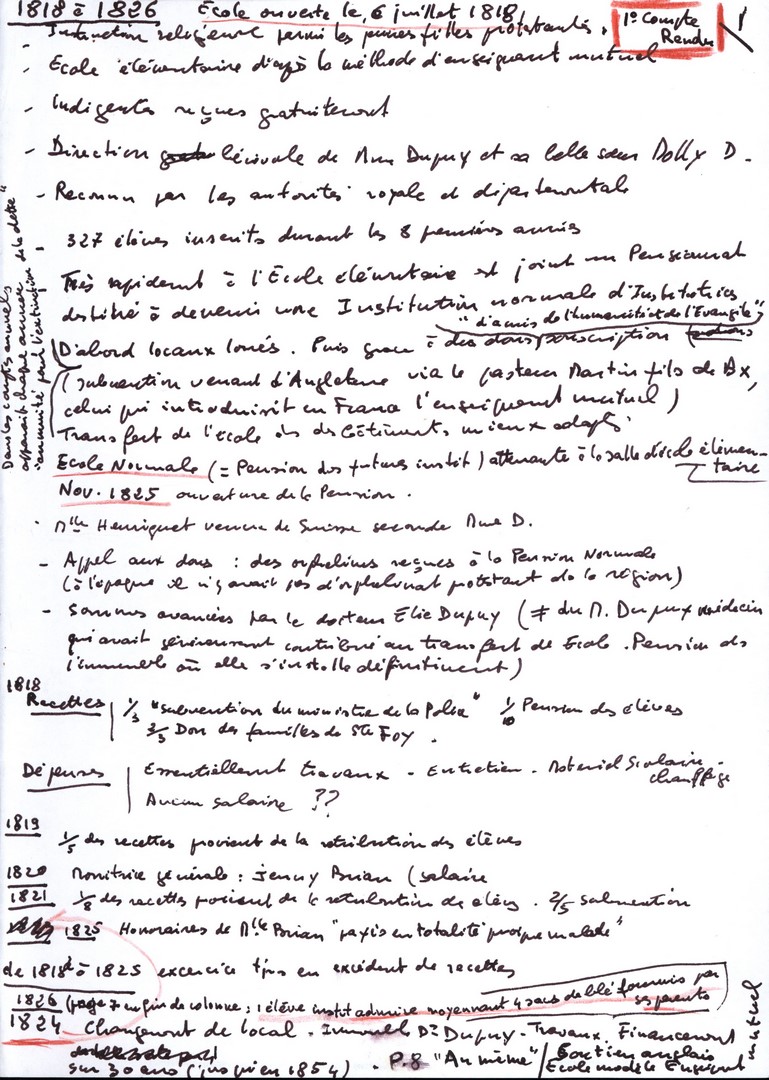 1818 à 1826 Ecole ouverte le 6 juillet 1818
1° Compte Rendu 1
- Instruction religieuse parmi les jeunes filles protestantes.
- Ecole élémentaire d'après la méthode d'enseignement mutuel
- Indigentes reçues gratuitement
- Direction bénévole de Mme Dupuy et sa belle sœur Dolly D.
- Reconnu par les autorités royale et départementale
- 327 élèves inscrits durant les 8 premières années
Très rapidement à l'Ecole élémentaire est joint un Pensionnat
destiné à devenir une Institution normale d'Institutrices
"d'amis de l'humanité et de l'Evangile"
D'abord locaux loués. Puis grace à des dons, souscription
(subvention venant d'Angleterre via le pasteur Martin fils de Bx,
celui qui introduisit en France l'enseignement mutuel)
Transfert de l'école ds des bâtiments mieux adaptés
Ecole Normale (= Pension des futures instit) attenante à la salle d'école élémen-
taire
Nov. 1825 ouverture de la Pension.
Dans les comptes annuels
apparait chaque année
l'indemnité pour l'extinction de la dette"
- Mlle Henriquet venue de Suisse seconde Mme D.
- Appel aux dons : des orphelines reçues à la Pension Normale
(à l'époque il n'y avait pas d'orphelinat protestant ds la région)
- Sommes avancées par le docteur Elie Dupuy (≠ du M. Dupuy médecin
qui avait généreusement contribué au transfert de Ecole. Pension ds
l'immeuble où elle s'installe définitivement)
1818
Recettes 1/3 "subvention du ministre de la Police" 1/10 Pension des élèves
2/3 Don des familles de Ste Foy.
Dépenses Essentiellement travaux - Entretien - Matériel Scolaire -
chauffage
Aucun salaire ??
1819 1/5 des recettes provient de la rétribution des élèves
1820 monitrice générale : Jenny Brian (salaire
1821 1/8 des recettes provient de la rétribution de élèves. 2/5 subvention
1825 Honoraires de Mlle Brian "payés en totalité quoique malade"
de 1818 à 1825 exercice tjrs en excédent de recettes
1826 (page 7 en fin de colonne : 1 élève instit admise moyennant 4 sacs de blé fournis par
ses parents
1824 Changement de local - Immeuble Dr Dupuy - Travaux. Financement
sur 30 ans (jusqu'en 1854). - P.8 "An même" / Soutien anglais
Ecole modèle Enseignt mutuel